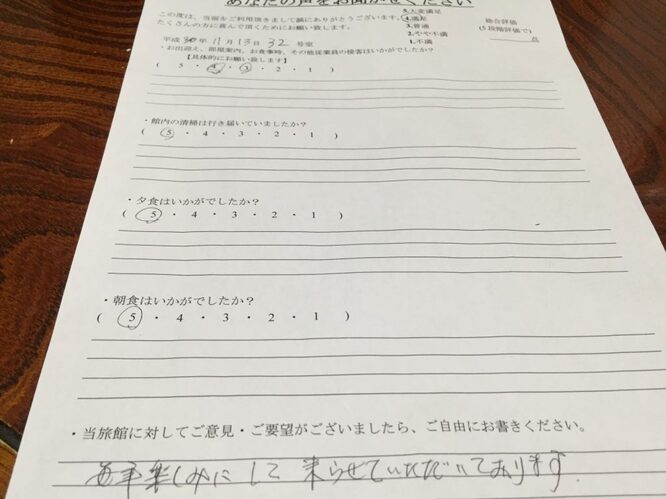 あなたの声をお聞かせください
この度は、当宿をご利用頂きまして誠にありがとうございます。
たくさんの方に喜んで頂くためにお願い致します。
5.大変満足
4.満足
3.普通
2.やや不満
1.不満
総合評価
(5段階評価で)
点
平成30年11月13日 32号室
・お出迎え、部屋案内、お食事時、その他従業員の接客はいかがでしたか?
【具体的にお願い致します】
( 5 ・ 4 ・ 3 ・ 2 ・ 1 )
・館内の清掃は行き届いていましたか?
( 5 ・ 4 ・ 3 ・ 2 ・ 1 )
・夕食はいかがでしたか?
( 5 ・ 4 ・ 3 ・ 2 ・ 1 )
・朝食はいかがでしたか?
( 5 ・ 4 ・ 3 ・ 2 ・ 1 )
・当旅館に対してご意見・ご要望がございましたら、ご自由にお書きください。
毎年楽しみにして来らせていただいております。